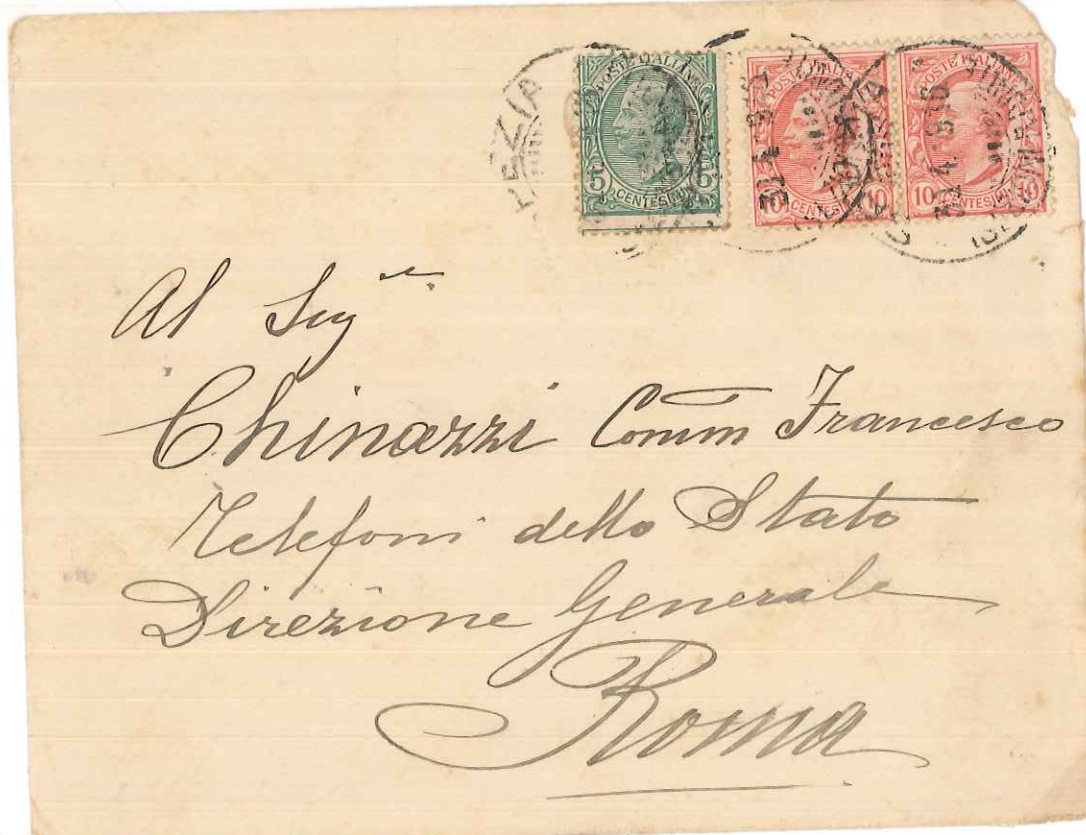 POSTE ITALIANE
5 5
CENTESIMI
POSTE ITALIANE
10 10
CENTESIMI
POSTE ITALIANE
10 10
CENTESIMI
Al Sigr
Chinazzi Comm Francesco
Telefoni dello Stato
Direzione Generale
Roma